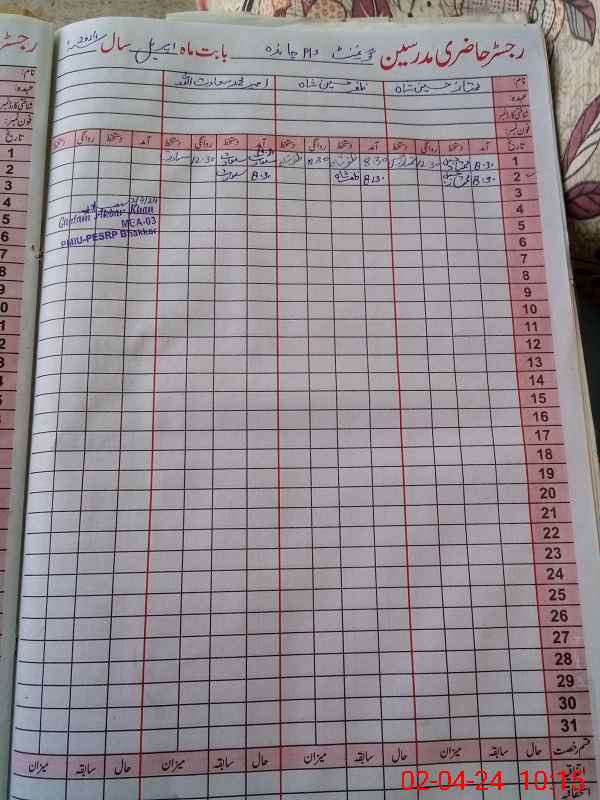 رجسٹر حاضری مدرسین گورنمنٹ بابت ماہ اپریل سال 2024
نام: ممتاز حسین شاہ ظفر حسین شاہ امیر محمد سعادت اللہ
عہدہ:
شناختی کارڈ نمبر:
فون نمبر:
تاریخ آمد دستخط روانگی دستخط آمد دستخط روانگی دستخط آمد دستخط روانگی دستخط آمد دستخط روانگی دستخط
1 8.30 12.30 8.30 12.30 8.30 12.30
2 8.30 8.30 8.30
3
4
2/4/24
Ghulam Akbar Khan
5
MEA-03
6
PMIU-PESRP Bhakkar
7
8
9
10
11
12
13
14
15
16
17
18
19
20
21
22
23
24
25
26
27
28
29
30
31
قسم رخصت حال سابقہ میزان حال سابقہ میزان حال سابقہ میزان حال سابقہ میزان
اتفاقیہ
02-04-24 10:15